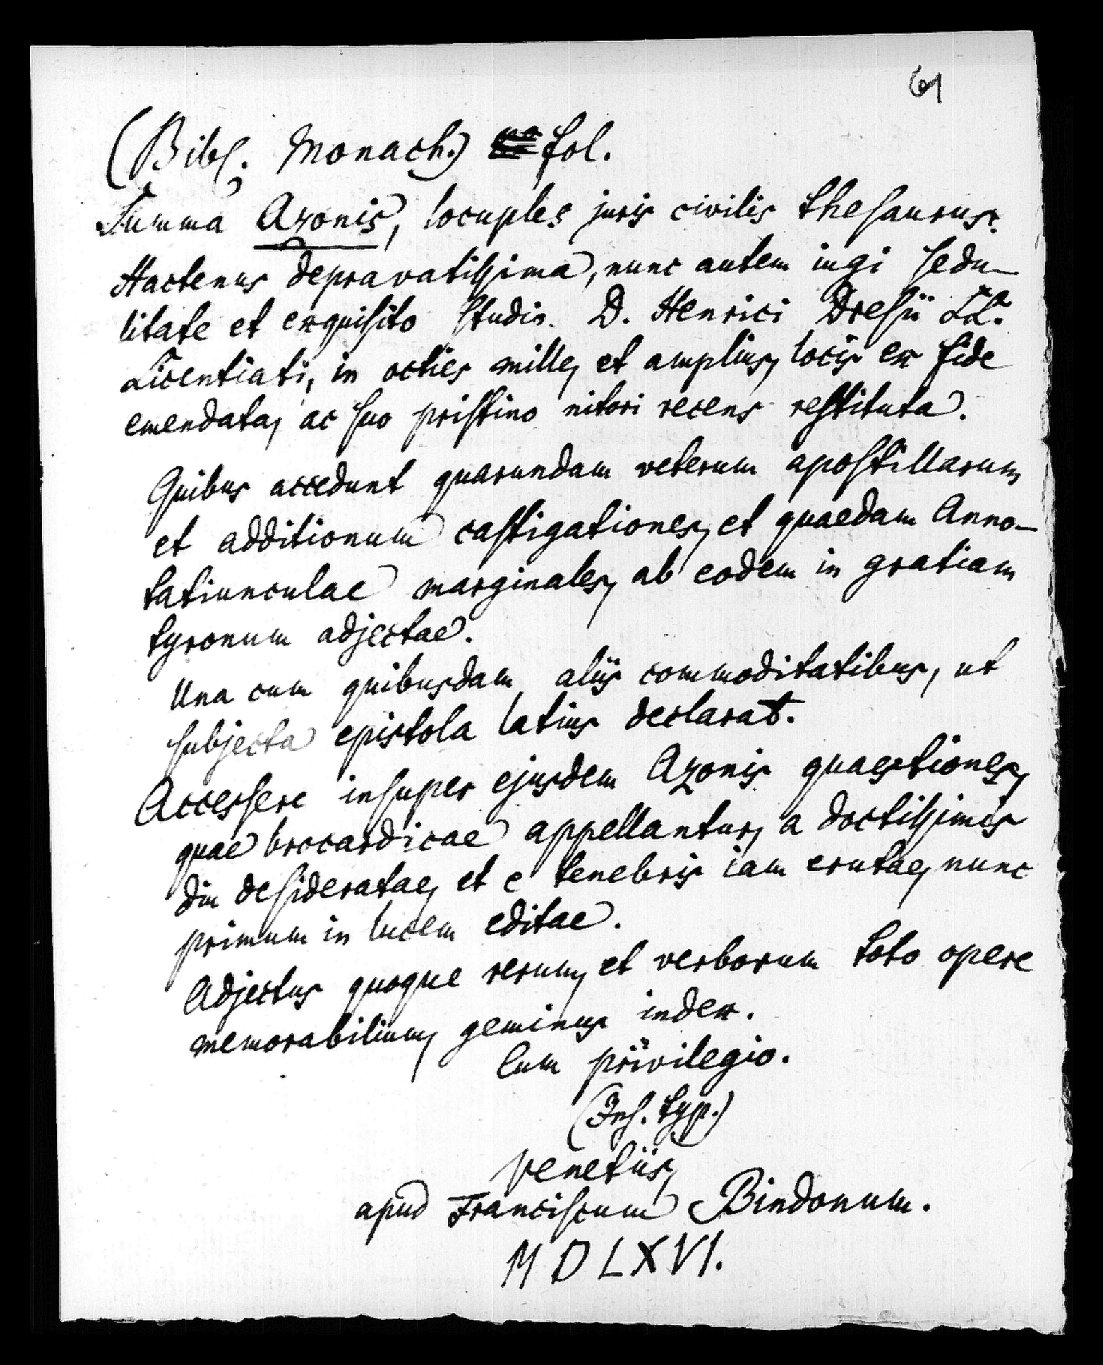 61
(Bibl. Monach.) fol.
Summa Azonis, locuples juris civilis thesaurus.
Hactenus depravatissima, nunc autem iugi sedu-
litate et exquisito studio D. Henrici Dresii LL.
Licentiati, in octies mille, et amplius, locis ex fide
emendata, ac suo pristino nitori recens restituta.
Quibus accedunt quarundam veterum apostillarum,
et additionum castigationes, et quaedam Anno-
tatiunculae marginales, ab eodem in gratiam
tyronum adjectae.
Una cum quibusdam aliis commoditatibus, ut
subjecta epistola latius declarat.
Accessere insuper ejusdem Azonis quaestiones,
quae brocardicae appellantur, a doctissimis
diu desideratae, et e tenebris iam erutae, nunc
primum in lucem editae.
Adjectus quoque rerum, et verborum toto opere
memorabilium, geminus index.
Cum privilegio.
(Ins. typ.)
Venetiis,
apud Franciscum Bindonum.
MDLXVI.